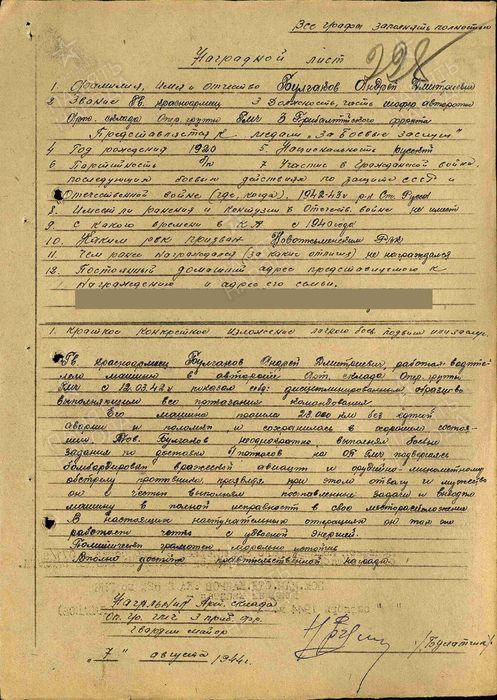 Все графы заполнять полностью
228
Наградной лист
1. Фамилия, Имя и отчество Булгаков Андрей Дмитриевич
2 Звание Гв. красноармеец 3 Должность, часть шофер автороты
Арт. склада Опер. группы ГМЧ 3 Прибалтийского фронта
Представляется к медали „За Боевые заслуги"
4 Год рождения 1920 5 Национальность русский
6 Партийность б/п 7 Участие в Гражданской войне,
последующих боевых действиях по защите СССР и
Отечественной войне (где, когда). 1942-43г р-н Ст. Русса
8 Имеет ли ранения и контузии в Отечеств. войне не имеет
9 С какого времени в К А с 1940 года
10. Каким РВК призван РВК
11. Чем ранее награждался (за какие отличия) не награждался
12. Постоянный домашний адрес представляемого к
награждению и адрес его семьи.
1. Краткое конкретное изложение личного боев. подвига или заслуг.
Гв. красноармеец Булгаков Андрей Дмитриевич, работая водите-
лем машины в автороте Арт. склада Опер. группы
ГМЧ с 12.03.42г показал себя дисциплинированным, образцово
выполняющим все приказания командования.
Его машина прошла 23.000 км без
аварий и поломок и сохранилась в хорошем состоя-
нии. Тов. Булгаков неоднократно выполнял боевые
задания по доставке б/поезов на ОП ГМЧ подвергаясь
бомбардировкам вражеской авиации и орудийно-минометному
обстрелу противника, проявляя при этом отвагу и мужество
он с честью выполнял поставленные задачи и выводил
машину в полной исправности в свое месторасположение
В настоящих наступательных операциях он так же
работает четко с удвоеной энергией.
Политически грамотен морально устойчив
Вполне достоин правительственной награды.
Начальник Арт. склада
Оп. гр. ГМЧ 3 приб. фр.
гвардии майор
„7" августа 1944г.